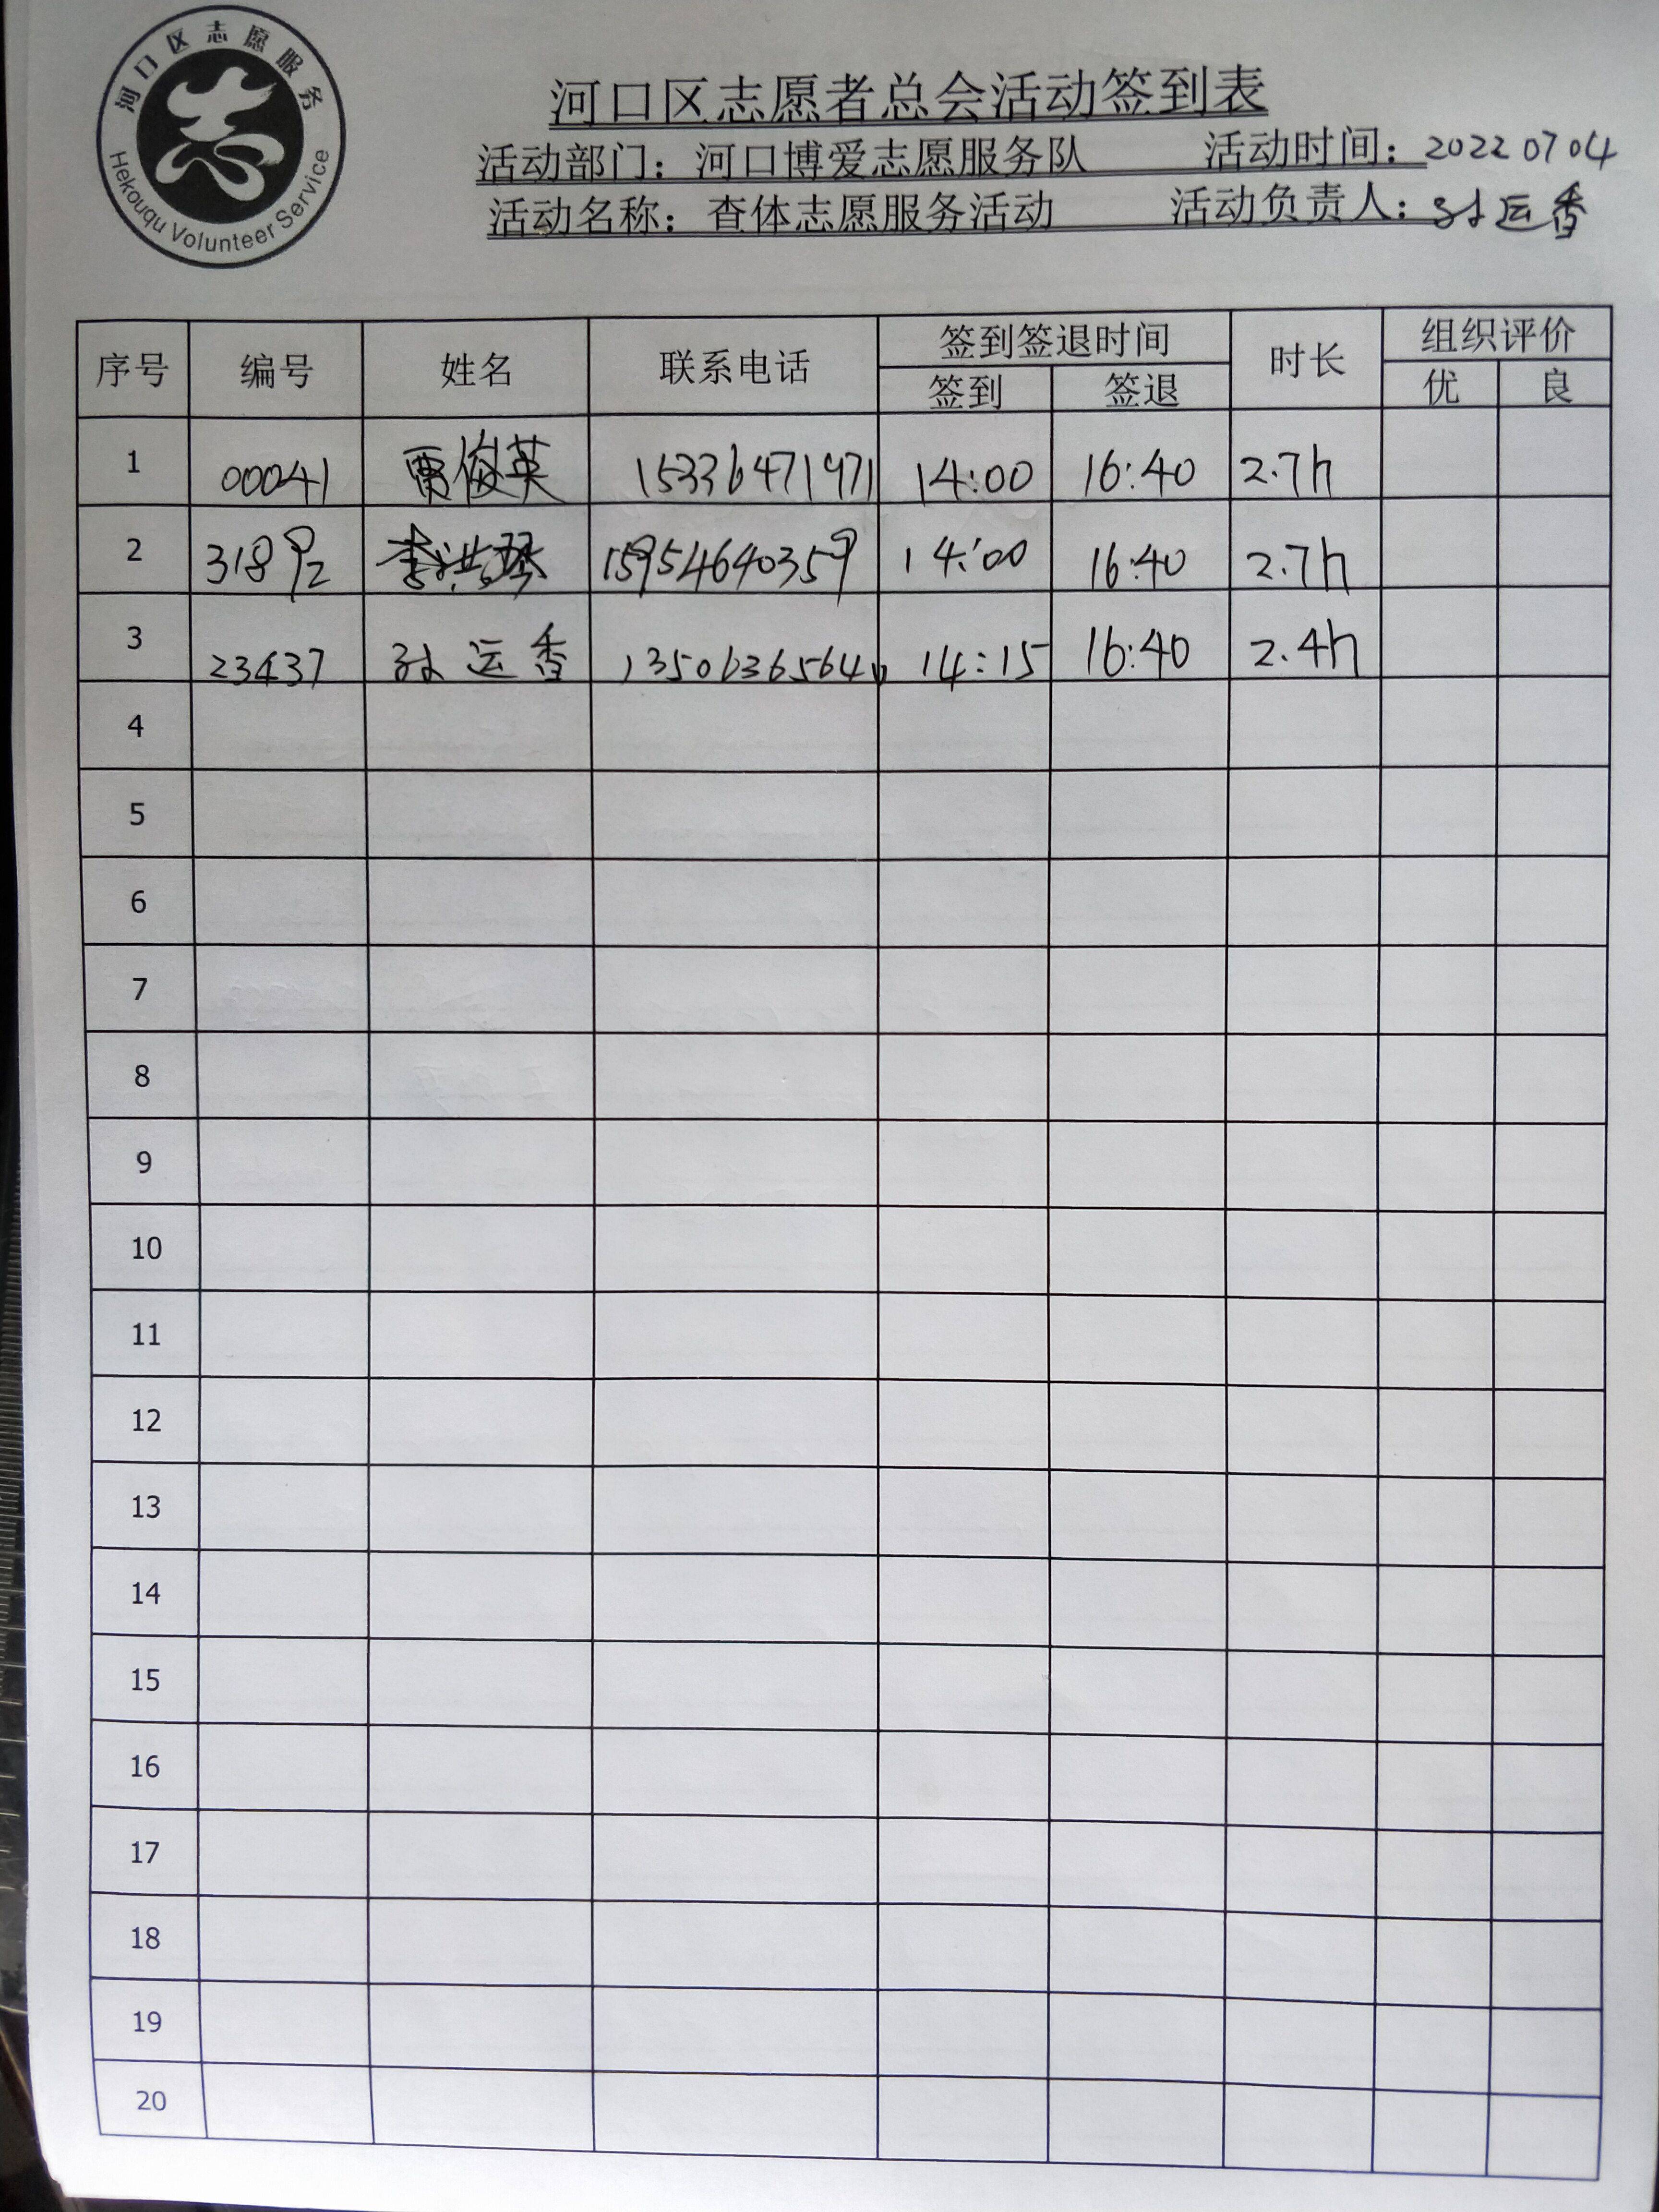 河口区志愿服务
Hekouqu Volunteer Service
河口区志愿者总会活动签到表
活动部门：河口博爱志愿服务队 活动时间：2022 07 04
活动名称：查体志愿服务活动 活动负责人：孙运香
序号 编号 姓名 联系电话 签到签退时间 时长 组织评价
签到 签退 优 良
1 00041 贾俊英 15336471971 14:00 16:40 2.7h
2 31892 李洪琴 15954640359 14:00 16:40 2.7h
3 23437 孙运香 13506365640 14:15 16:40 2.4h
4
5
6
7
8
9
10
11
12
13
14
15
16
17
18
19
20